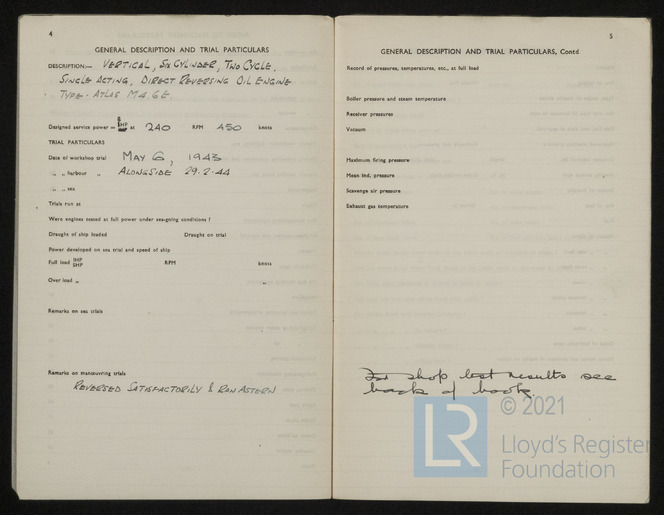 4
GENERAL DESCRIPTION AND TRIAL PARTICULARS
DESCRIPTION:— VERTICAL, SIX CYLINDER, TWO CYCLE,
SINGLE ACTING, DIRECT REVERSING OIL ENGINE
TYPE - ATLAS M4 6E.
Designed service power = B SHP at 240 RPM 450 knots
TRIAL PARTICULARS
Date of workshop trial MAY 6, 1943
„ „ harbour „ ALONGSIDE 29.2.44
„ „ sea
Trials run at
Were engines tested at full power under sea-going conditions?
Draught of ship loaded Draught on trial
Power developed on sea trial and speed of ship
Full load IHP SHP RPM knots
Over load „ „
Remarks on sea trials
Remarks on manœuvring trials
REVERSED SATISFACTORILY & RAN ASTERN
5
GENERAL DESCRIPTION AND TRIAL PARTICULARS, Contd.
Record of pressures, temperatures, etc., at full load
Boiler pressure and steam temperature
Receiver pressures
Vacuum
Maximum firing pressure
Mean ind. pressure
Scavenge air pressure
Exhaust gas temperature
For shop test results see
back of book.
LR
© 2021
Lloyd's Register
Foundation